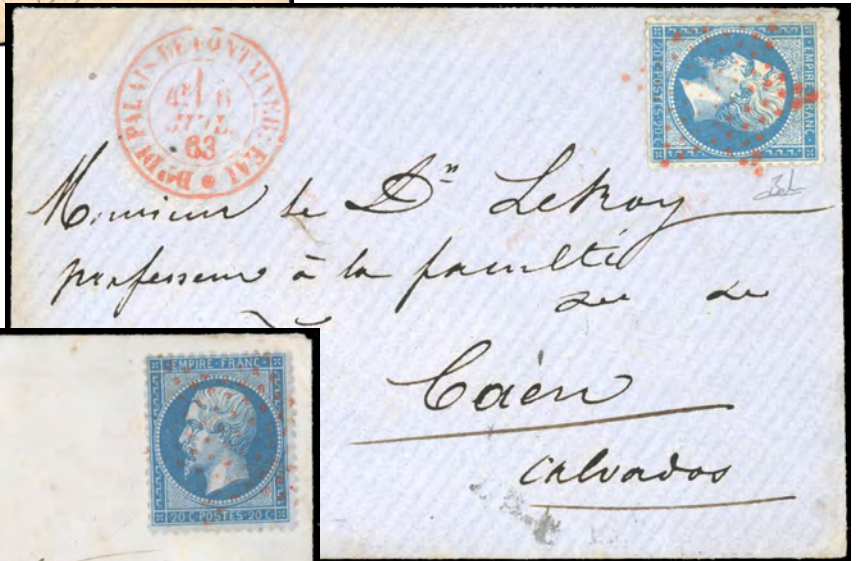 Bau DU PALAIS DE FONTAINEB. EAU
4E 6
JUIL
63
EMPIRE FRANC
20 C POSTES 20 C
Monsieur le Dr LeRoy
professeur à la faculté
de
Caën
Calvados
EMPIRE FRANC
20 C POSTES 20 C